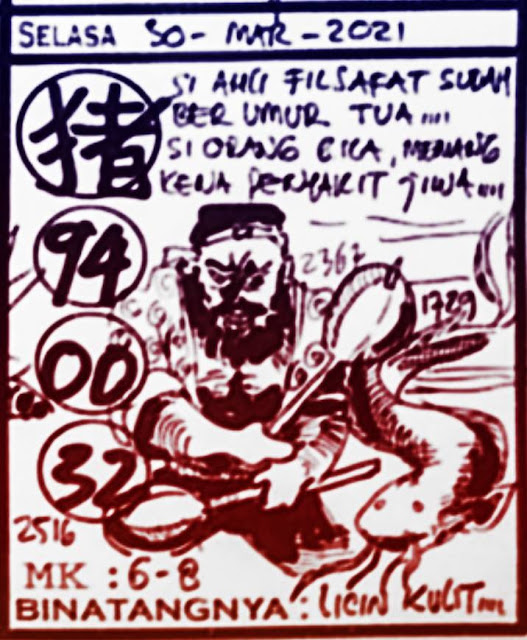 SELASA 30 - MAR - 2021
猪
SI AHLI FILSAFAT SUDAH
BER UMUR TUA....
SI ORANG GILA, MEMANG
KENA PENYAKIT JIWA....
94
00
32
2362
1729
2516
MK : 6-8
BINATANGNYA : LICIN KULIT...